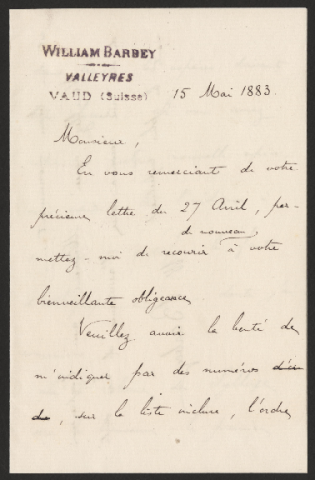 WILLIAM BARBEY
VALLEYRES
VAUD (Suisse)
15 Mai 1883.
Monsieur,
En vous remerciant de votre
précieuse lettre du 27 Avril, per-
de nouveau,
mettez-moi de recourir à votre
bienveillante obligeance
Veuillez avoir la bonté de
m'indiquer par des numéros
de, sur la liste incluse, l'ordre